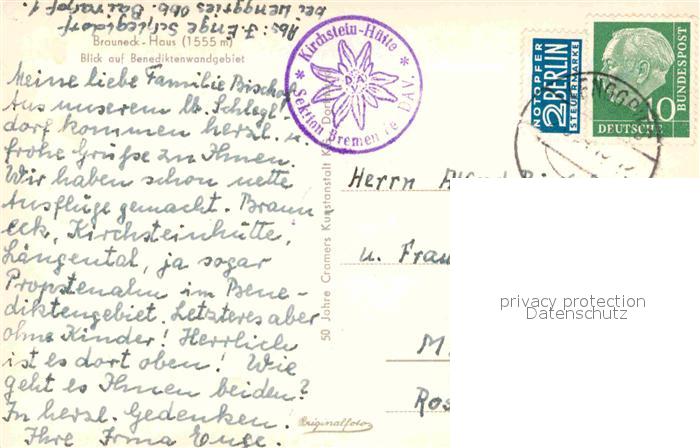 Abs: I. Enge Schlegldorf
bei Lenggries Obb. 
Brauneck-Haus (1555 m)
Blick auf Benediktenwandgebiet
Meine liebe Familie Bischof
Aus unserem lb. Schlegl
dorf kommen herzl. u.
frohe Grüße zu Ihnen.
Wir haben schon nette
Ausflüge gemacht. Braun
eck, Kirchsteinhütte,
Längental, ja sogar
Propstenalm im Bene-
diktengebiet. Letzteres aber
ohne Kinder! Herrlich
ist es dort oben! Wie
geht es Ihnen beiden?
In herzl. Gedenken.
Ihre Irma Enge.
* Kirchstein-Hütte *
Sektion Bremen DAV.
DAV
50 Jahre Cramers Kunstanstalt KG, Dortmund
Originalfoto
NOTOPFER
2 BERLIN
STEUERMARKE
DEUTSCHE
BUNDESPOST
LENGGRIES
Herrn
u. Frau
M.
Ros
privacy protection
Datenschutz